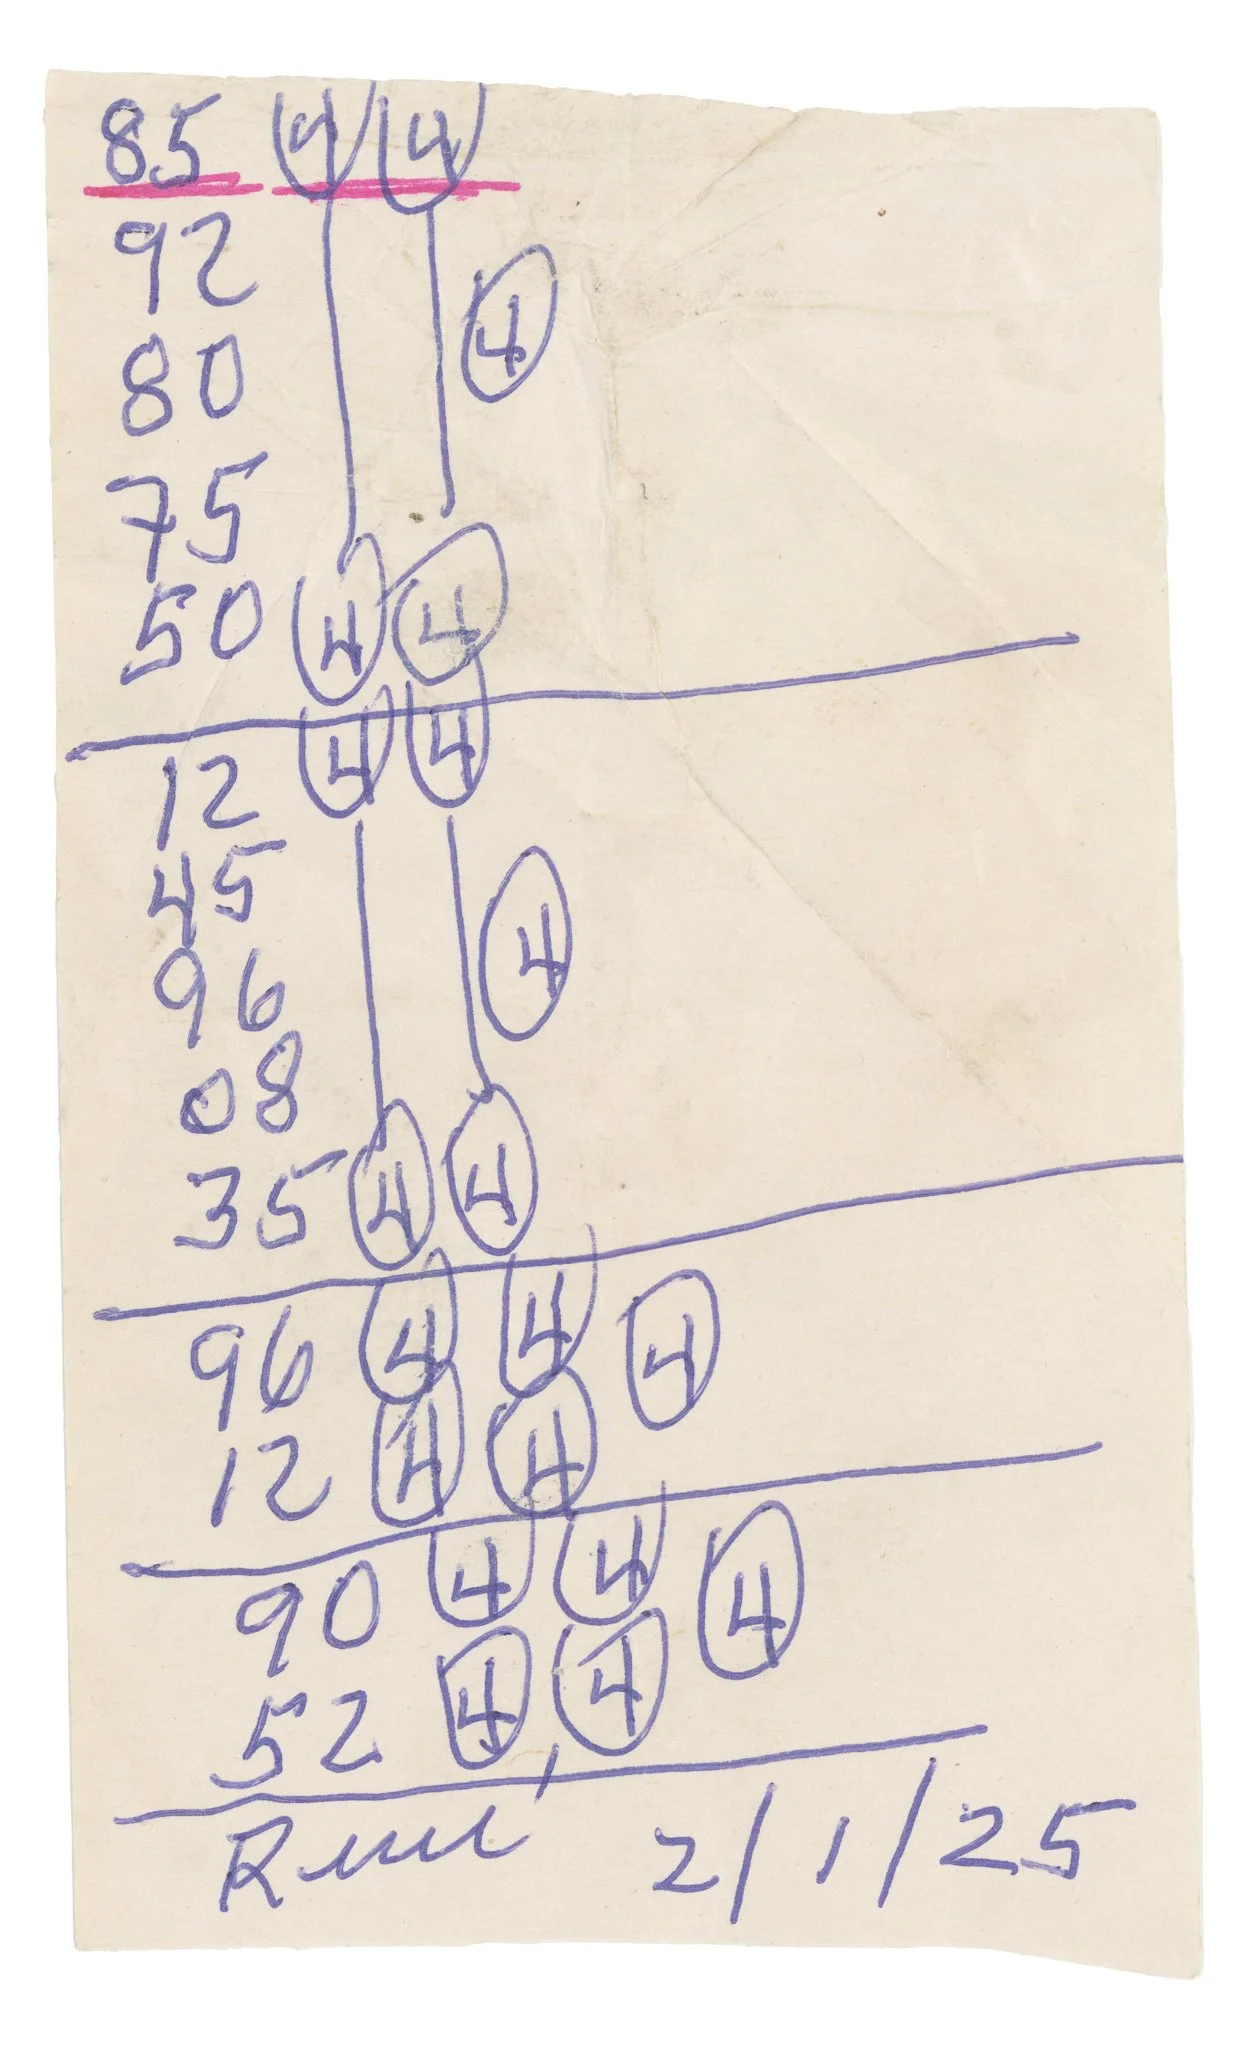 85 4 4
92
4
80
75
50 4 4
12 4 4
45
96 4
08
35 4 4
96 4 4 4
12 4 4
90 4 4 4
52 4 4
2/1/25